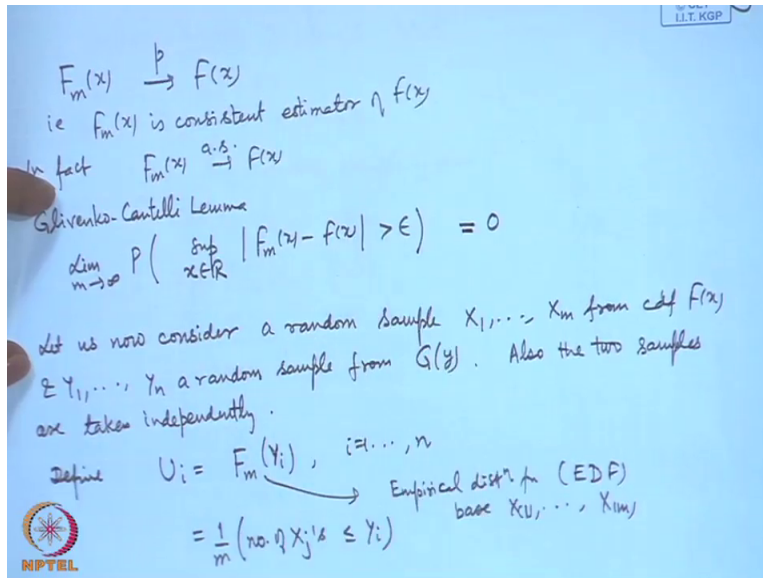 I.I.T. KGP
F_m(x) →^p F(x)
ie F_m(x) is consistent estimator of F(x)
In fact F_m(x) →^{a.s.} F(x)
Glivenko-Cantelli Lemma
lim_{m→∞} P( sup_{x∈ℝ} |F_m(x) - F(x)| > ε ) = 0
Let us now consider a random sample X_1, ..., X_m from cdf F(x)
& Y_1, ..., Y_n a random sample from G(y). Also the two samples
are taken independently.
Define U_i = F_m(Y_i), i=1..., n
Empirical distn fn (EDF)
base X_(1), ..., X_(m)
= 1/m (no. of X_j's ≤ Y_i)
NPTEL